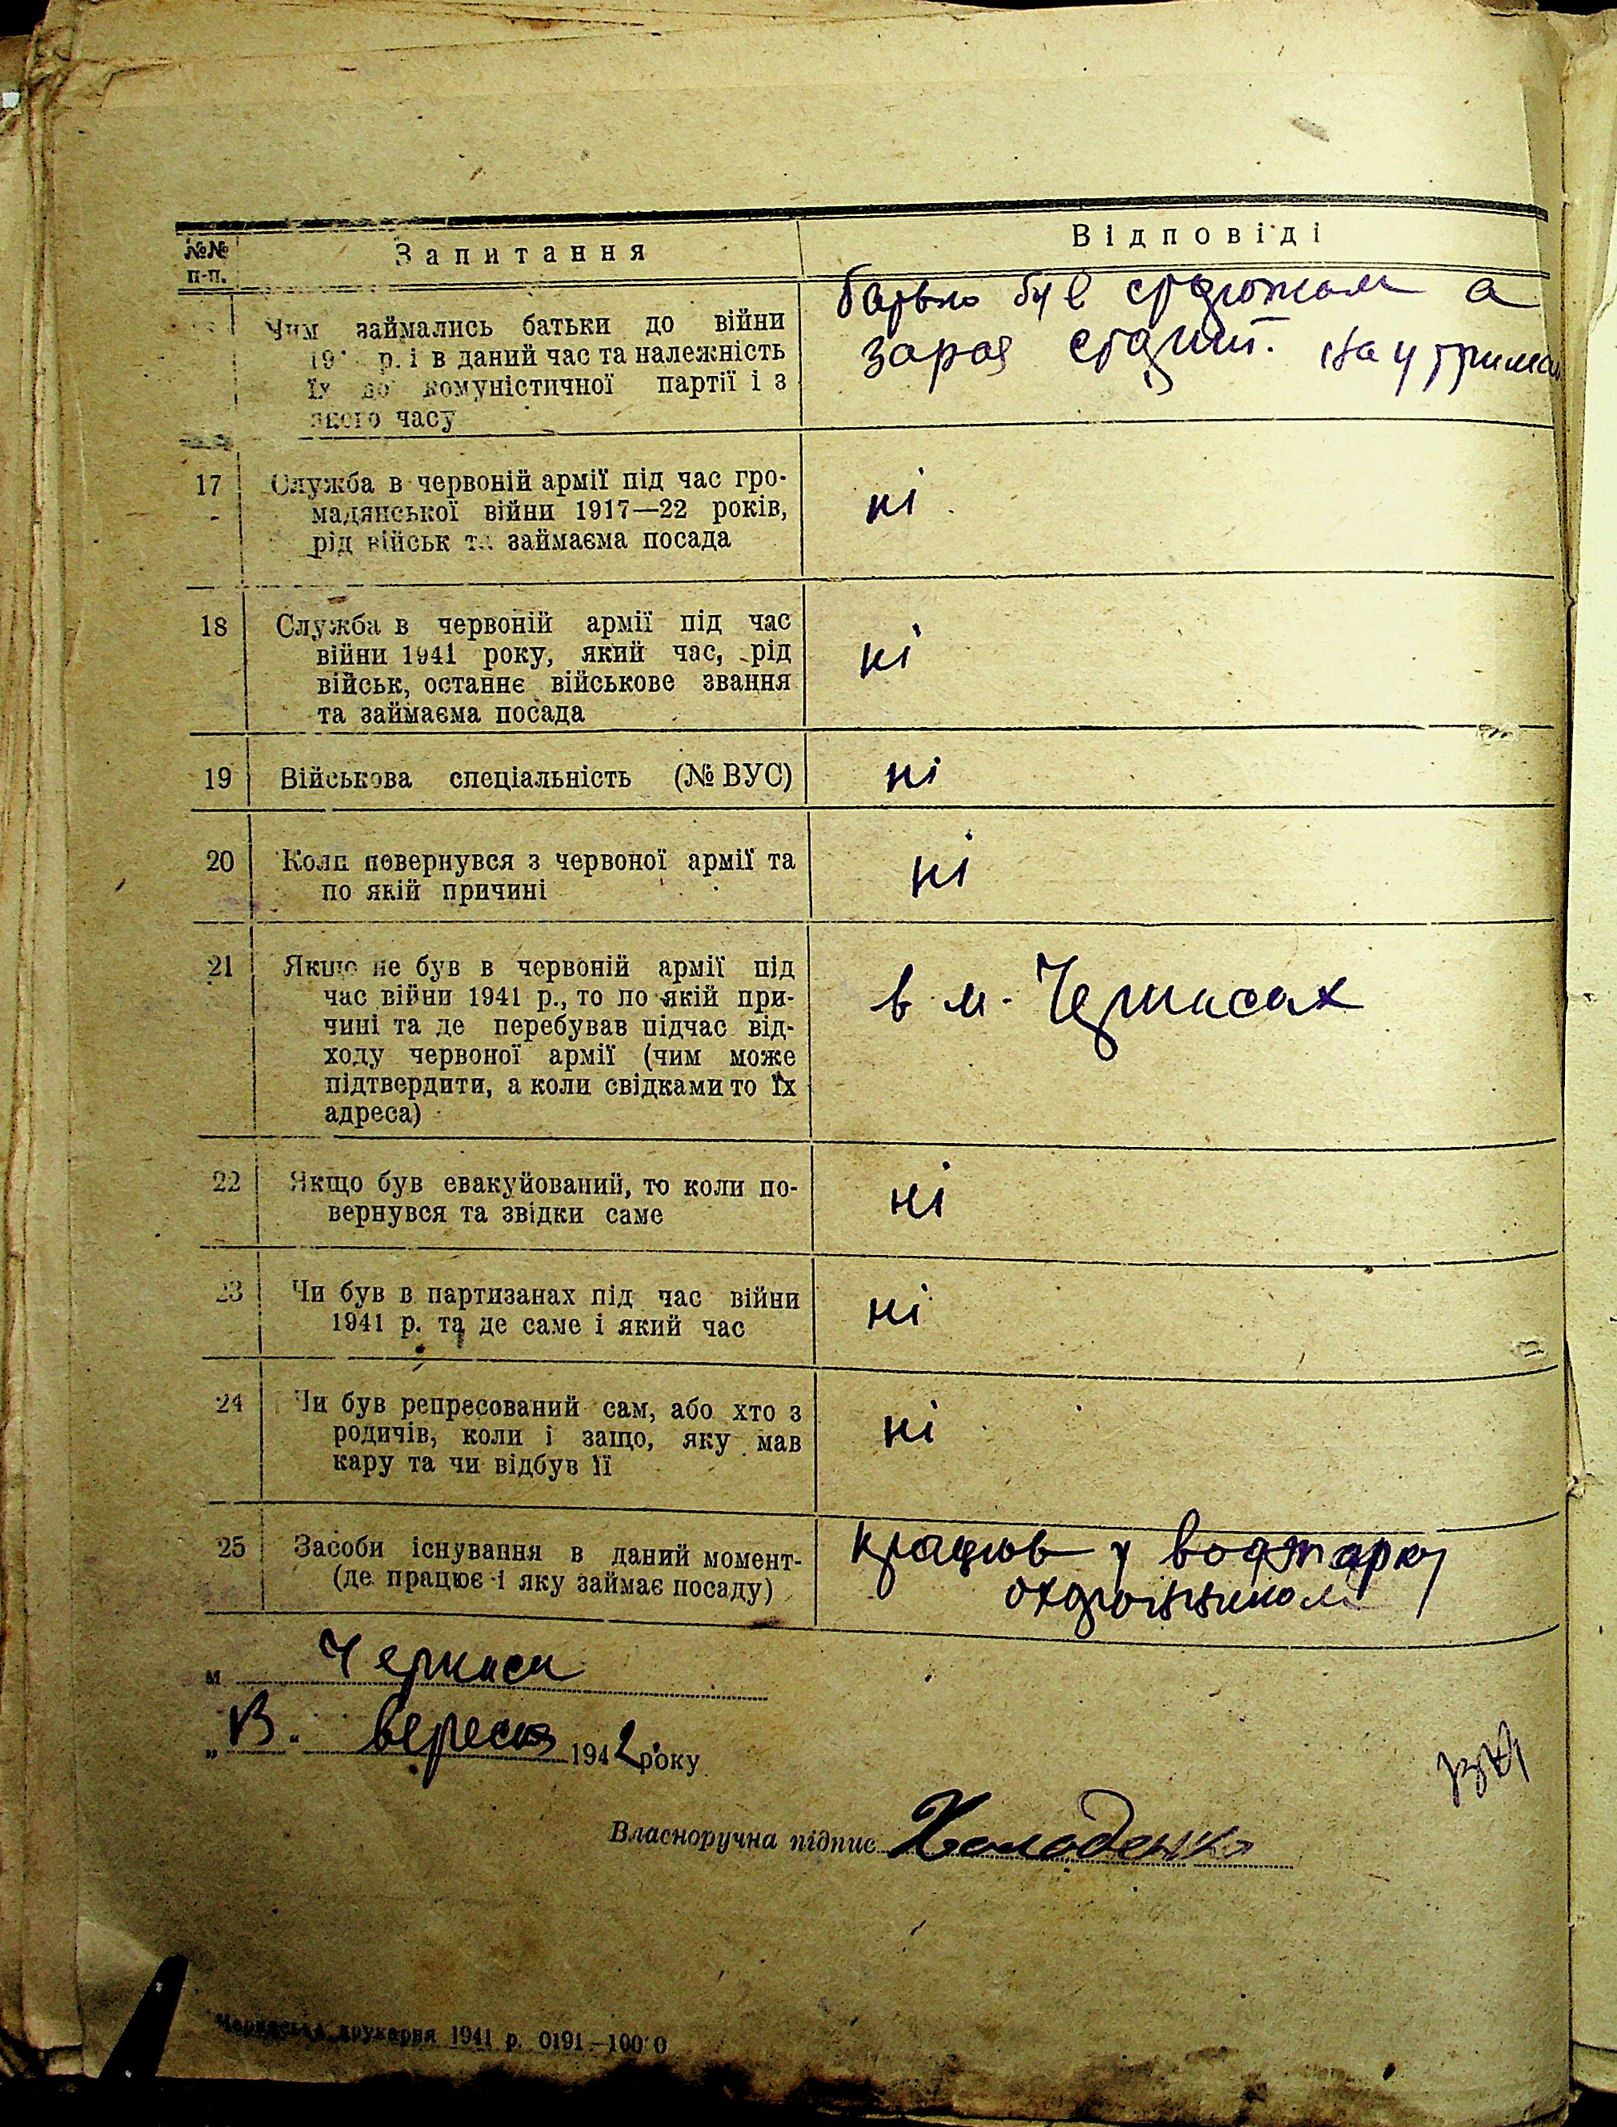 №№ п-п.
Запитання
Відповіді
Чим займались батьки до війни
р. і в даний час та належність
їх до комуністичної партії і з
якого часу
батько був сторожом а
зараз старий. На утриман
17
Служба в червоній армії під час гро-
мадянської війни 1917—22 років,
рід військ та займаєма посада
ні
18
Служба в червоній армії під час
війни 1941 року, який час, рід
військ, останнє військове звання
та займаєма посада
ні
19
Військова спеціальність (№ ВУС)
ні
20
Коли повернувся з червоної армії та
по якій причині
ні
21
Якщо не був в червоній армії під
час війни 1941 р., то по якій при-
чині та де перебував підчас від-
ходу червоної армії (чим може
підтвердити, а коли свідками то їх
адреса)
в м. Черкасах
22
Якщо був евакуйований, то коли по-
вернувся та звідки саме
ні
23
Чи був в партизанах під час війни
1941 р. та де саме і який час
ні
24
Чи був репресований сам, або хто з
родичів, коли і защо, яку мав
кару та чи відбув її
ні
25
Засоби існування в даний момент-
(де працює і яку займає посаду)
працюв у
охоронником
м Черкаси
вересня 1942 року
Власноручна підпис Холоденко
Черкаська друкарня 1941 р. 0191—10000